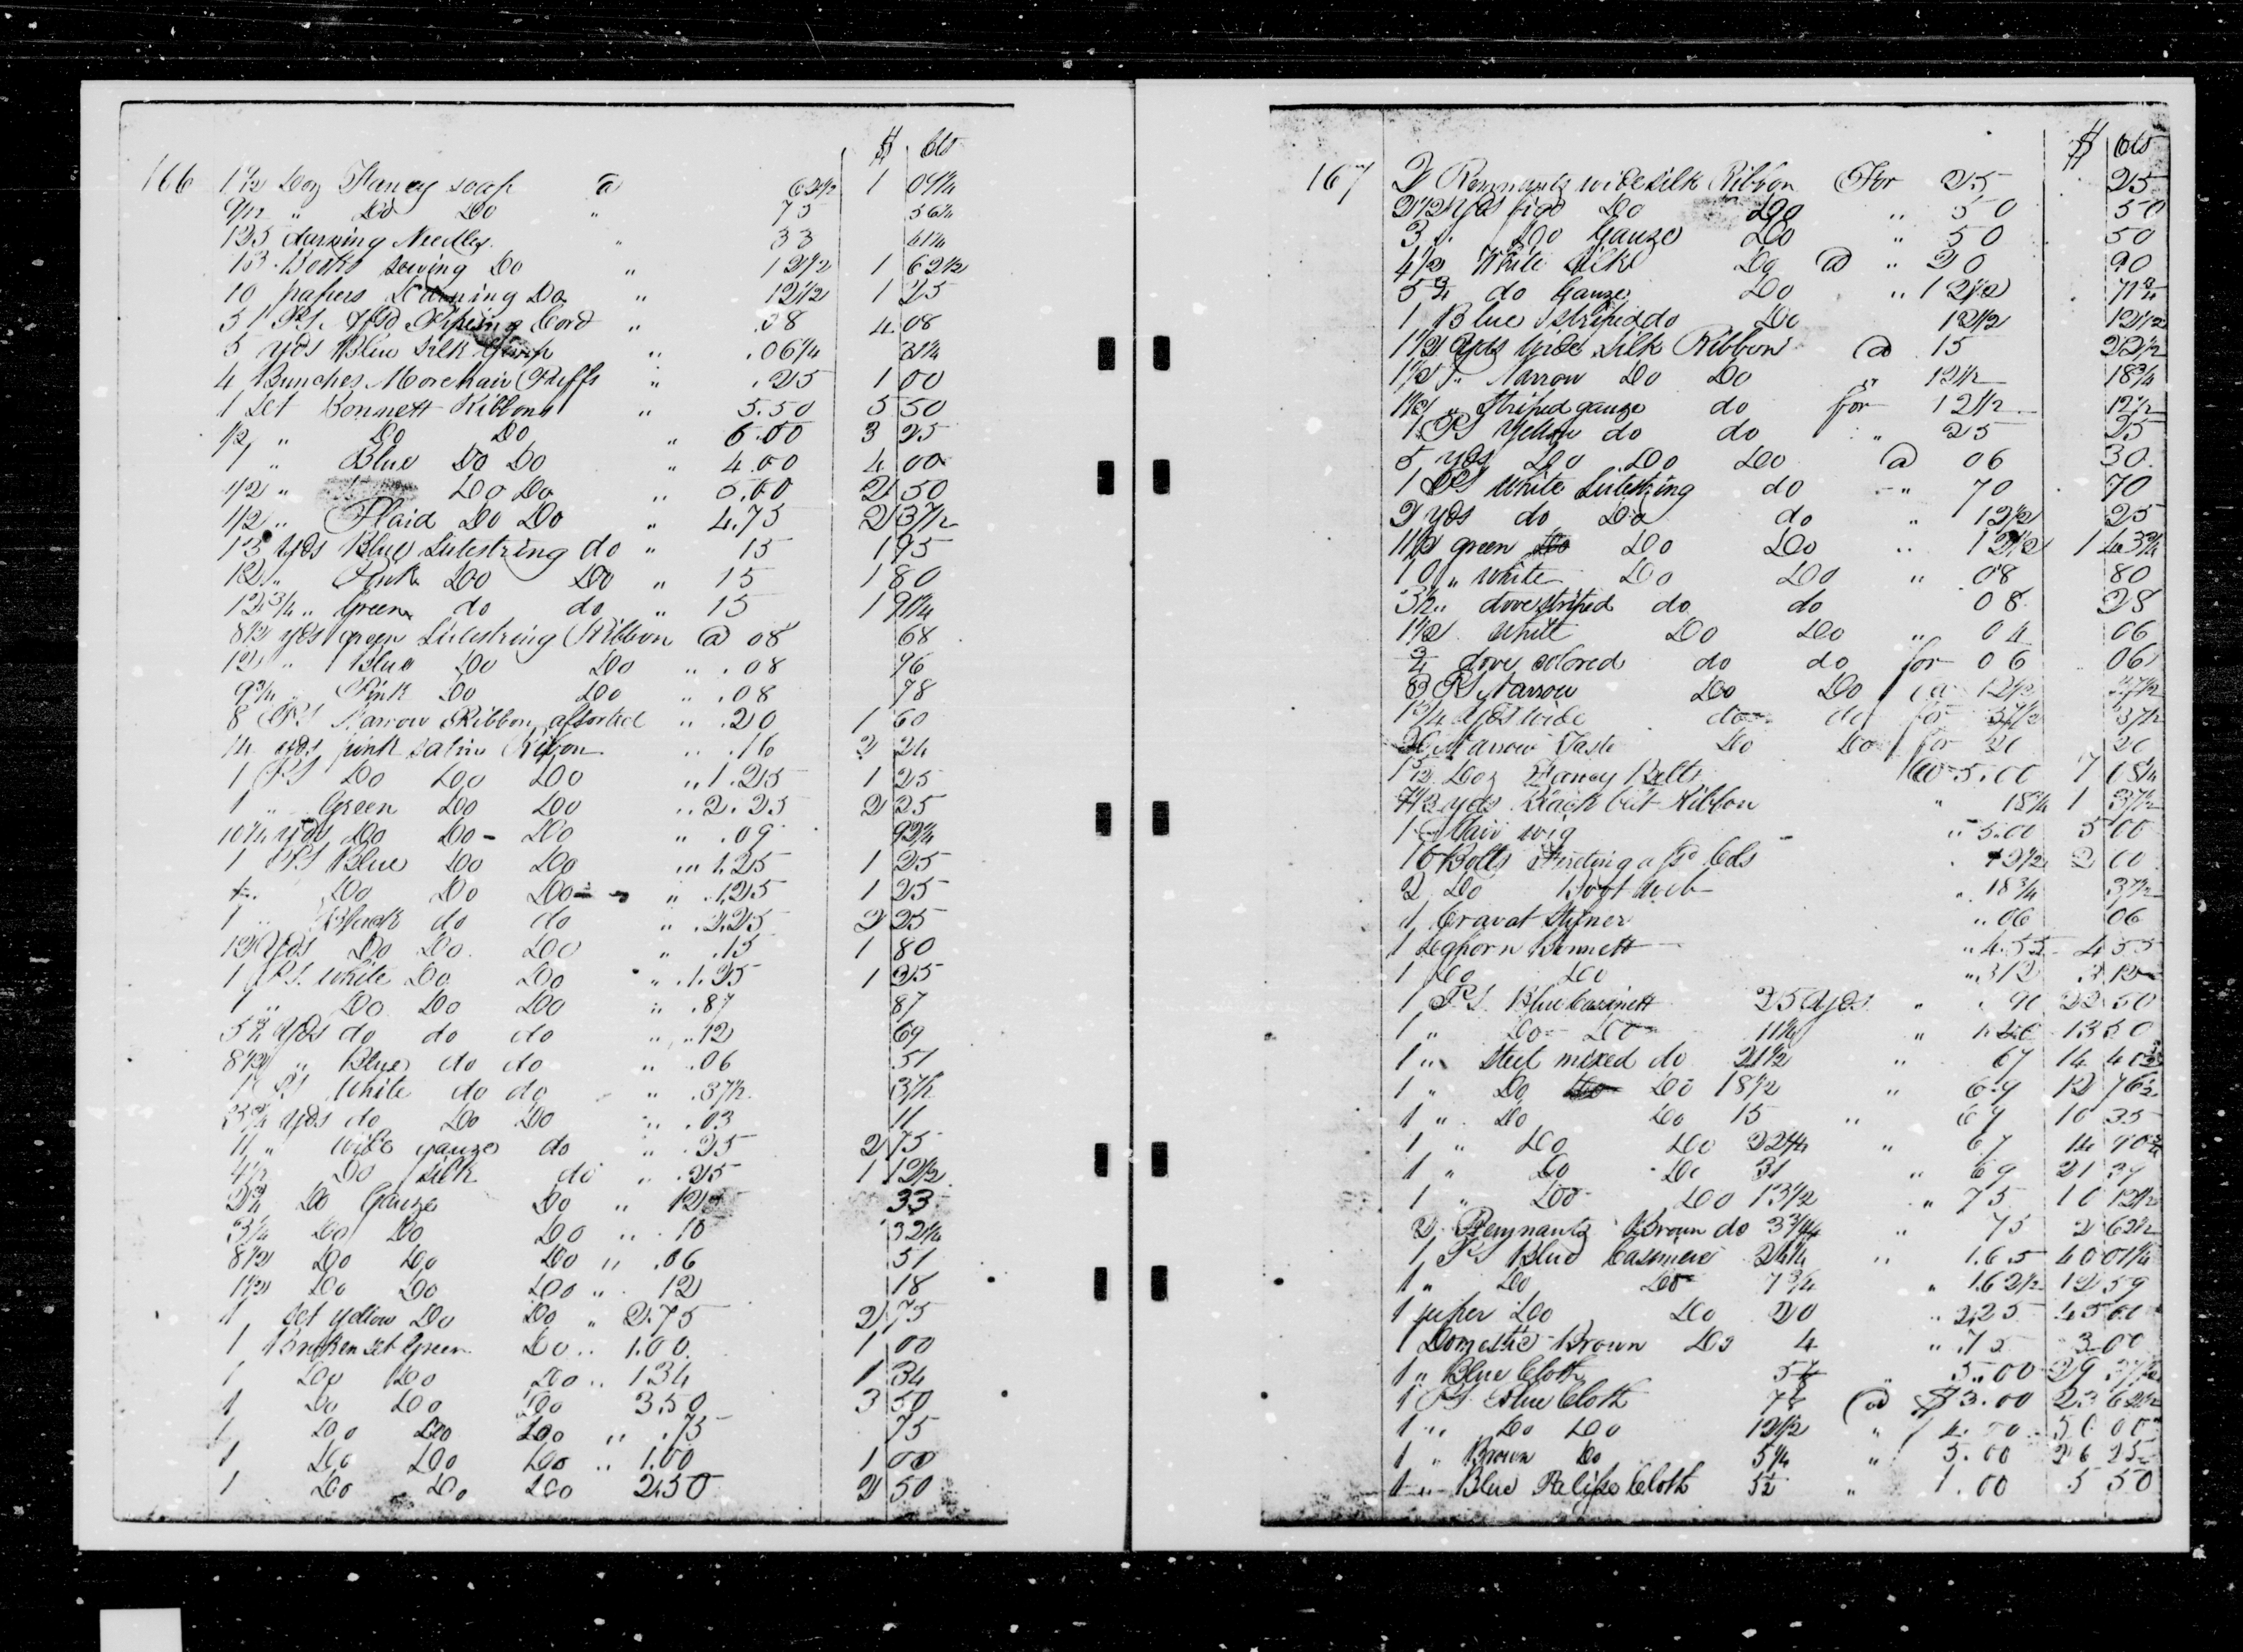 $ Cts
166 1 8/12 Doz Fancy soap @ 62 1/2 1 04 1/4
9/12 " Do Do " 75 56 1/4
125 darning Needles " 33 41 1/4
13 Books sewing Do " 12 1/2 1 62 1/2
10 papers Darning Do " 12 1/2 1 25
51 PS Assd Piping Cord " .08 4.08
5 yds Blue Silk Gimp " .06 1/4 31 1/4
4 Bunches Morehair Puffs " .25 1 00
1 Set Bonnett Ribbons " 5.50 5 50
1/2 " Do Do " 6.50 3 25
1 " Blue Do Do " 4.00 4 00
1/2 " Do Do " 5.00 2 50
1/2 " Plaid Do Do " 4.75 2 37 1/2
13 yds Blue Lutestring do " 15 1 95
12 " Pink Do Do " 15 1 80
12 3/4 " Green do do " 15 1 91 1/4
8 1/2 yds green Lutestring Ribbon @ 08 68
12 " Blue Do Do " .08 96
9 3/4 " Pink Do Do " .08 78
8 PS Narrow Ribbon assorted " .20 1 60
14 yds pink satin Ribon " .16 2 24
1 PS Do Do Do " 1.25 1 25
1 " Green Do Do " 2.25 2 25
10 1/4 yds Do Do - Do " .09 92 1/4
1 PS Blue Do Do " 1.25 1 25
1 " Do Do Do " 1.25 1 25
1 " Black do do " 2.25 2 25
12 Yds Do Do Do " .15 1 80
1 PS. White Do Do " 1.25 1 25
1 " Do Do Do " .87 87
5 3/4 Yds do do do " .12 69
8 1/2 " Blue do do " .06 51
1 PS White do do " .37 1/2 37 1/2
3 3/4 yds do Do Do " .03 11
11 " wide gauze do " .25 2 75
4 1/2 Do silk do " .25 1 12 1/2
2 3/4 Do Gauze Do " 12 33
3 1/4 Do Do Do " 10 32 1/4
8 1/2 Do Do Do " .06 51
1 1/2 Do Do Do " 12 18
1 set yellow Do Do " 2.75 2 75
1 Broken set Green Do " 1.00 1 00
1 Do Do Do " 134 1 34
1 Do Do Do 3.50 3 50
1 Do Do Do " .75 75
1 Do Do Do " 1.00 1 00
1 Do Do Do 2.50 2 50
$ Cts
167 2 Remnants wide silk Ribbon For 25 25
2 1/2 Yds figd Do Do " 50 50
3 " Do Gauze Do " 50 50
4 1/2 White Silk Do @ " 20 90
5 3/4 do Gauze Do " 12 1/2 71 3/4
1 Blue striped do Do 12 1/2 12 1/2
1 1/2 Yds wide Silk Ribbon @ 15 22 1/2
1 1/2 " Narrow Do Do " 12 1/2 18 3/4
1 1/2 " Striped gauze do for 12 1/2 12 1/2
1 PS Yellow do do " 25 25
5 yds Do Do Do @ 06 30
1 PS White Lutestring do " 70 70
2 yds do Do do " 12 1/2 25
11 1/2 green Do Do " 12 1/2 1 43 3/4
10 " white Do Do " 08 80
3 1/2 " dove striped do do 08 28
1 1/2 White Do Do " 04 06
3/4 dove colored do do for 06 06
3 PS Narrow Do Do @ 12 1/2 37 1/2
1 3/4 Yds wide do do for 37 1/2 37 1/2
Narrow Taste Do Do for 20 20
1 5/12 Doz Fancy Belts @ 5.00 7 08 1/4
Yds Black cut Ribbon " 18 3/4 1 37 1/2
1 Hair wig " 5.00 5 00
16 Bolts Ferreting assd Cols 12 1/2 2 00
2 Do Boot web " 18 3/4 37 1/2
1 Cravat Stifner " 06 06
1 Leghorn Bennett " 4.55 4 55
1 Do Do " 3 12 3 12
1 PS. Blue Casinett 25 Yds " 90 22 50
1 " Do Do 11 1/4 " 1.20 13 50
1 " Steel mixed do 21 1/2 " 67 14 40 1/2
1 " Do Do 18 1/2 " 69 12 76 1/2
1 " Do Do 15 " 69 10 35
1 " Do Do 22 1/4 " 67 14 90 3/4
1 " Do Do 31 " 69 21 39
1 " Do Do 13 1/2 " 75 10 12 1/2
2 Remnants Brown do " 75 2 62 1/2
1 PS Blue Casimere 24 1/4 " 1.65 40 01 1/4
1 " Do Do 7 3/4 " 1.62 1/2 12 59
1 super Do Do 20 " 2.25 45 00
1 Domestic Brown Do 4 " .75 3 00
1 " Blue Cloth " 5.00 29 37 1/2
1 PS. Blue Cloth 7 7/8 @ $3.00 23 62 1/2
1 " Do Do 12 1/2 " 4.00 50 00
1 " Brown Do 5 1/4 " 5.00 26 25
1 " Blue Pelipe Cloth 5 1/2 " 1.00 5 50